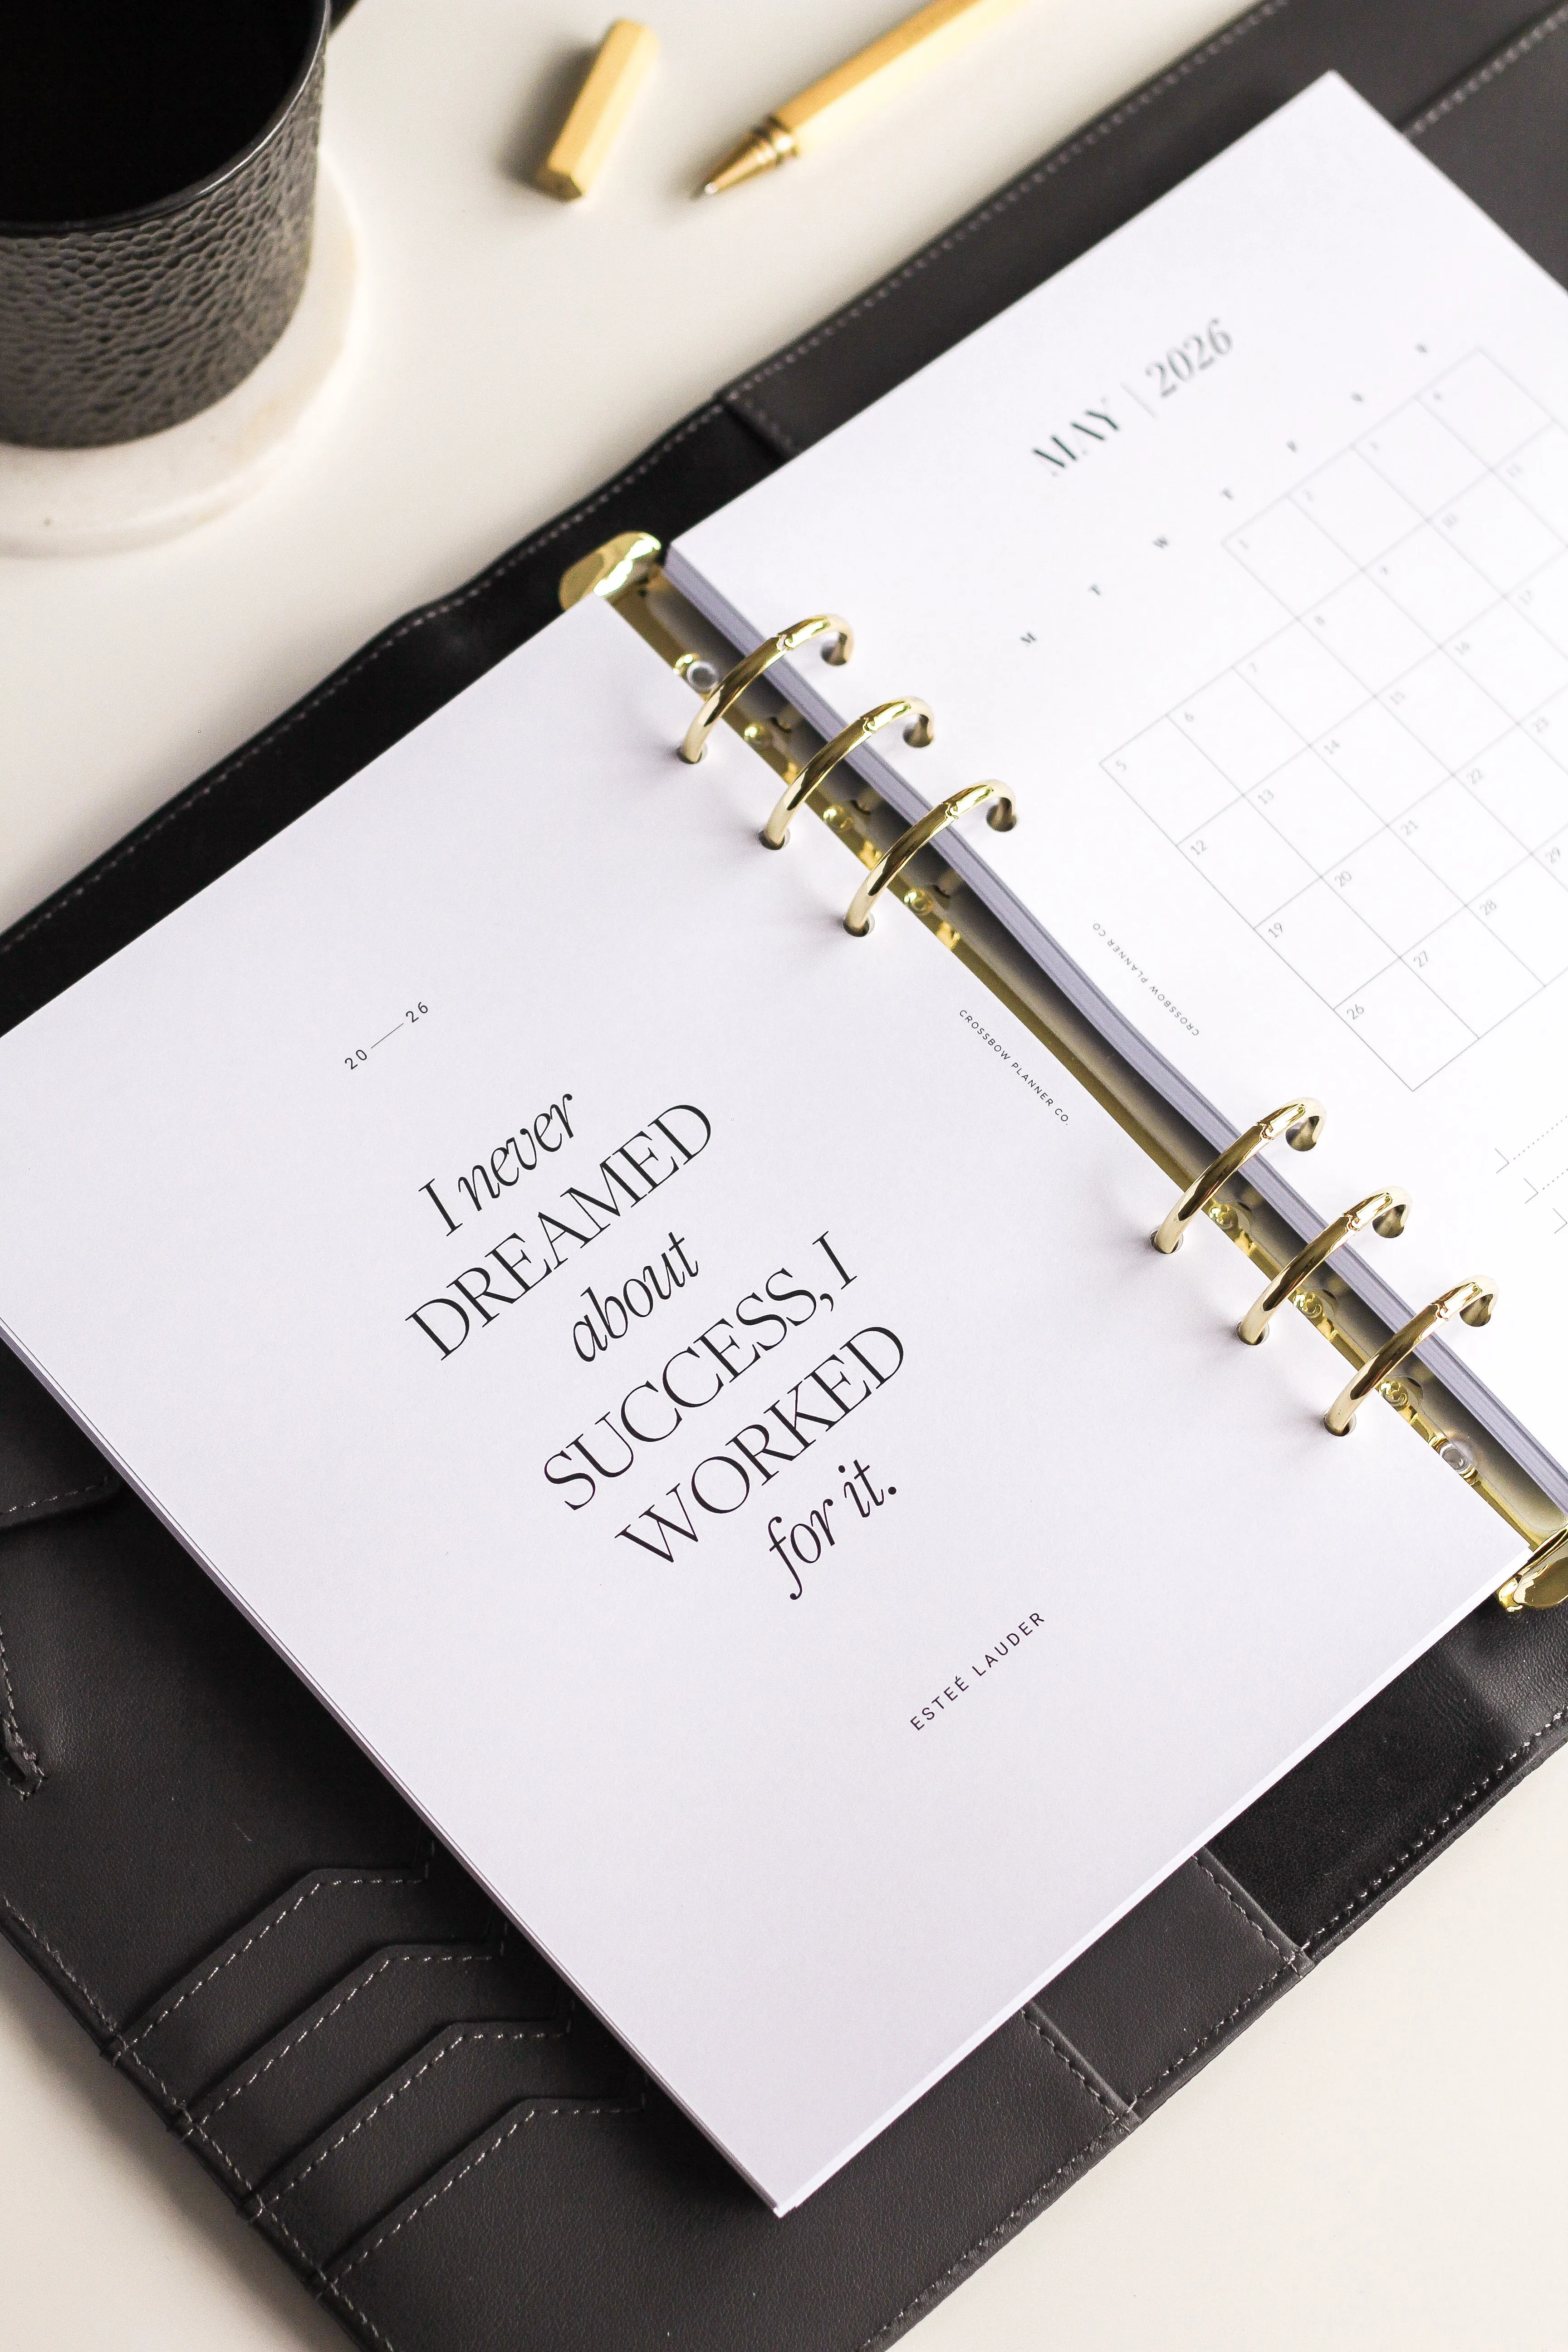 20—26
I never
DREAMED
about
SUCCESS, I
WORKED
for it.
ESTEÉ LAUDER
CROSSBOW PLANNER CO.
MAY | 2026
M T W T
1 2 3 4
5 6 7 8 9 10 11
12 13 14 15 16 17
19 20 21 22 23
26 27 28 29
CROSSBOW PLANNER CO